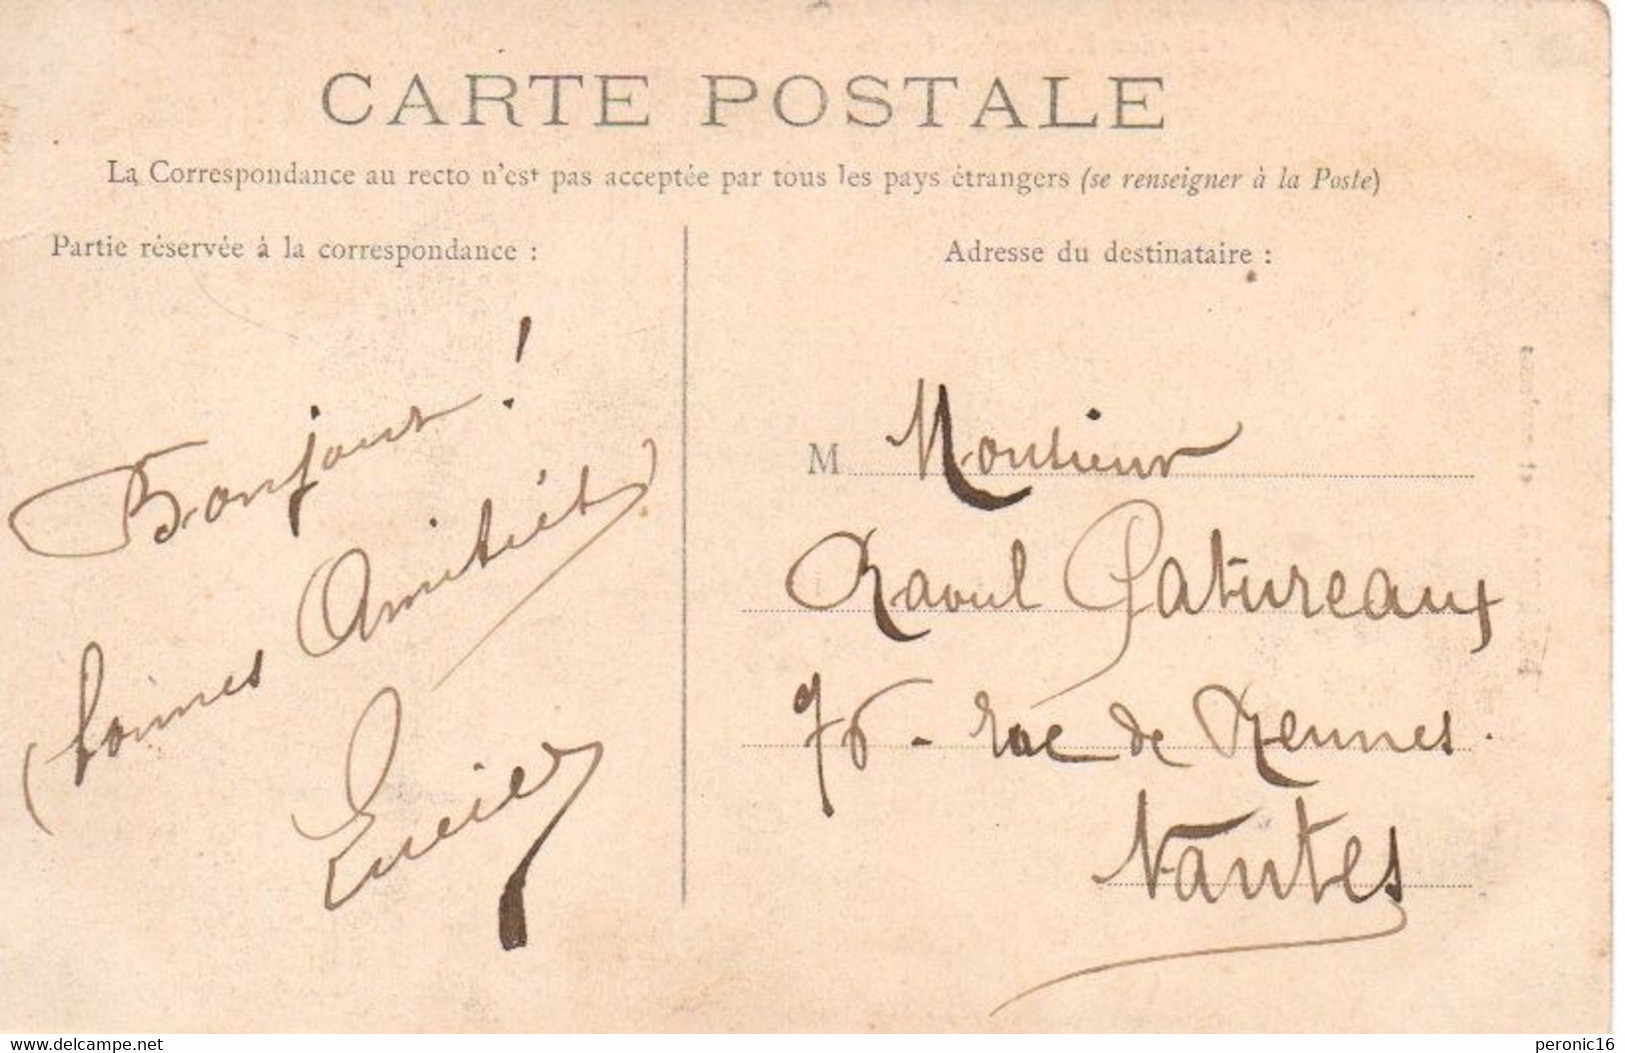 CARTE POSTALE
La Correspondance au recto n'est pas acceptée par tous les pays étrangers (se renseigner à la Poste)
Partie réservée à la correspondance :
Bonjour !
bonnes Amitiés
Lucien
Adresse du destinataire :
M Monsieur
Raoul Patureaux
76 - rue de Rennes.
Nantes
delcampe.net
peronic16